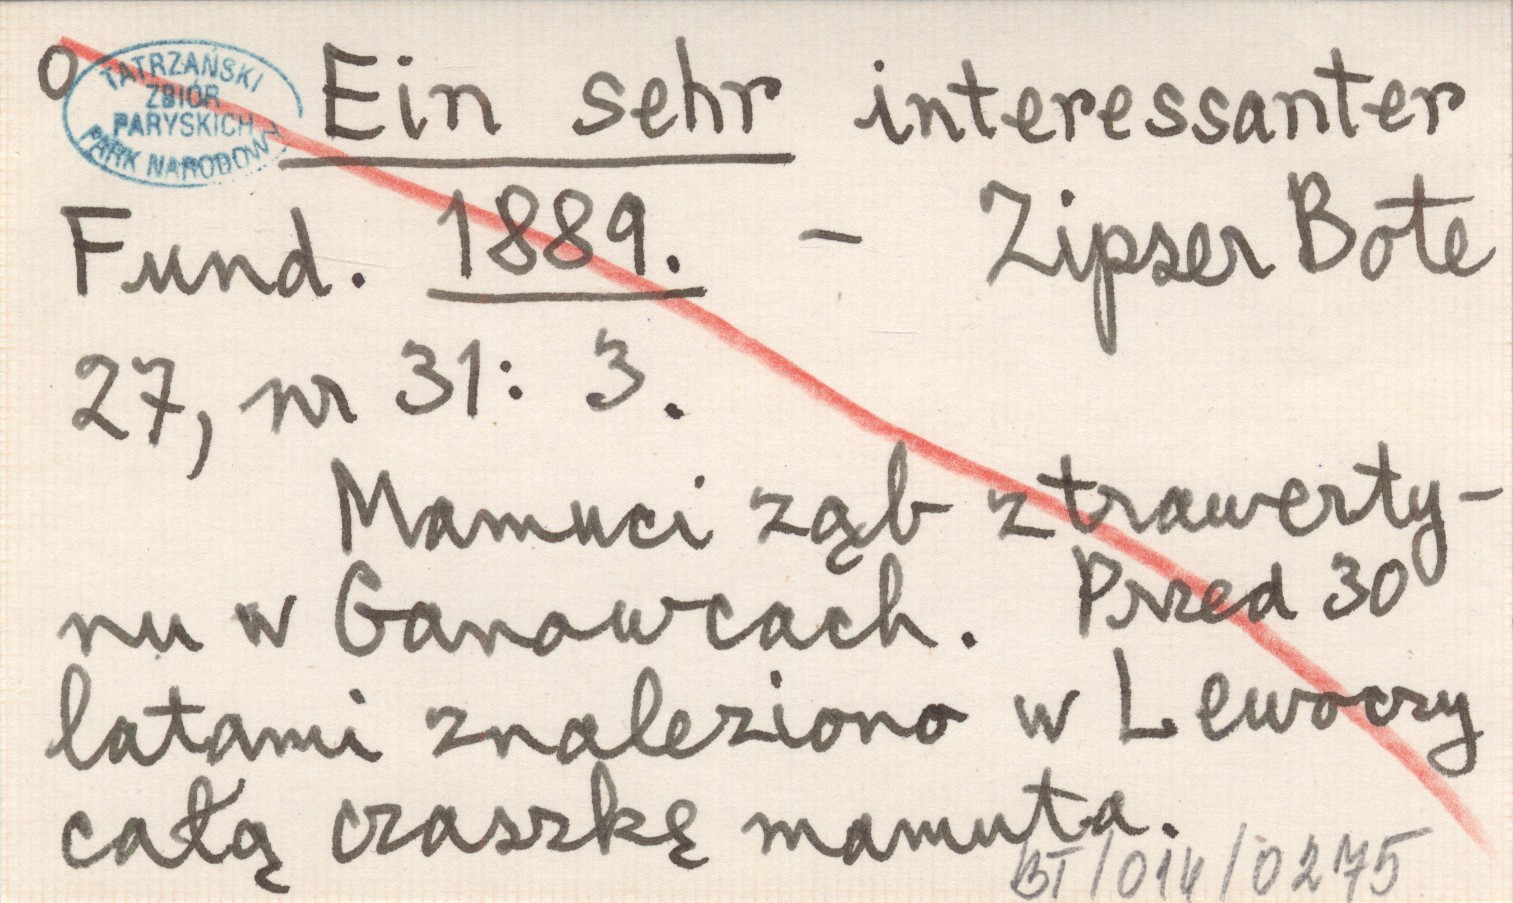 O
TATRZAŃSKI
ZBIÓR
PARYSKICH
PARK NARODOWY
Ein sehr interessanter
Fund. 1889. – Zipser Bote
27, nr 31: 3.
Mamuci ząb z trawerty-
nu w Ganowcach. Przed 30
latami znaleziono w Lewoczy
całą czaszkę mamuta.
BT/014/0275